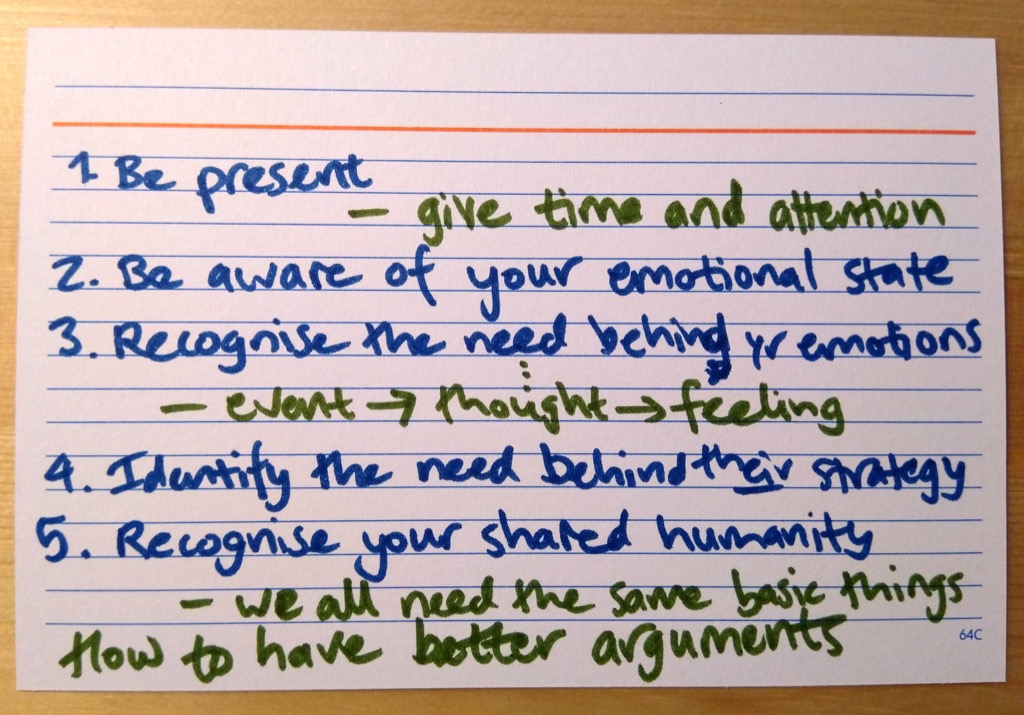 1 Be present
– give time and attention
2. Be aware of your emotional state
3. Recognise the need behind yr emotions
– event → thought → feeling
4. Identify the need behind their strategy
5. Recognise your shared humanity
– we all need the same basic things
64C
How to have better arguments